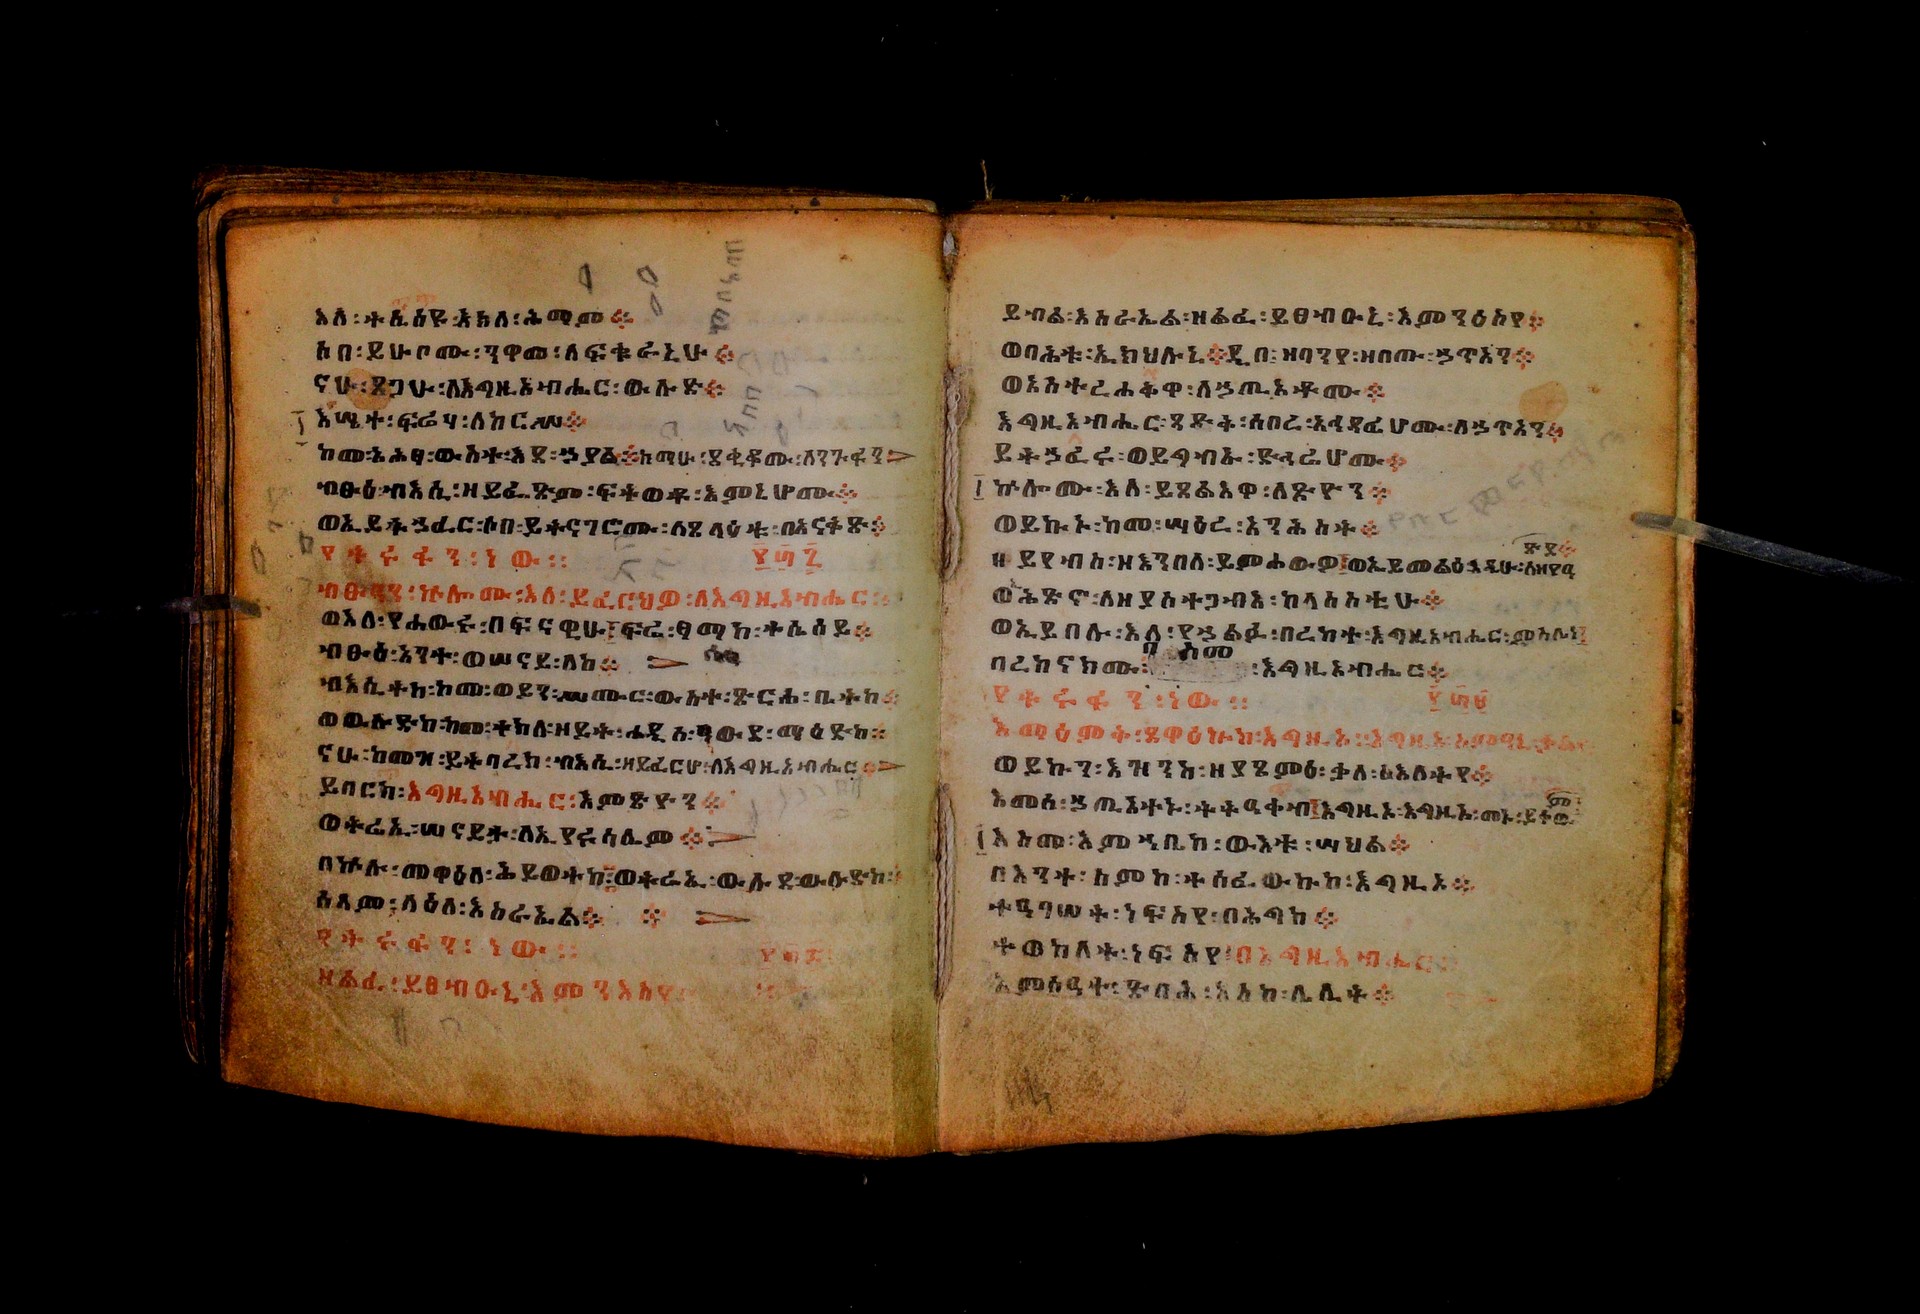 እለ፡ትሴሰዩ፡እክለ፡ሕማም፨
ሶበ፡ይሁቦሙ፡ንዋመ፡ለፍቁራኒሁ፨
ናሁ፡ጸጋሁ፡ለእግዚአብሔር፡ውሉድ፨
እሤተ፡ፍሬሃ፡ለከርሥ፨
ከመ፡አሕፃ፡ውስተ፡እደ፡ኃያል፨ከማሁ፡ደቂቆሙ፡ለንጉፋን
ብፁዕ፡ብእሲ፡ዘይፌጽም፡ፍትወቶ፡እምኔሆሙ፨
ወኢይትኃፈር፡ሶበ፡ይትናገሮሙ፡ለጸላዕቱ፡በአናቅጽ፨
የተሩፋን፡ነው፡፡ ፻፳፯
ብፁዓን፡ኵሎሙ፡እለ፡ይፈርህዎ፡ለእግዚአብሔር፨
ወእለ፡የሐውሩ፡በፍናዊሁ፡ፍሬ፡ፃማከ፡ተሴሰይ፨
ብፁዕ፡አንተ፡ወሠናይ፡ለከ፨
ብእሲትከ፡ከመ፡ወይን፡ሥሙር፡ውስተ፡ጽርሐ፡ቤትከ፨
ወውሉድከ፡ከመ፡ተክለ፡ዘይት፡ሐዲስ፡ዓውደ፡ማዕድከ፨
ናሁ፡ከመዝ፡ይትባረክ፡ብእሲ፡ዘይፈርሆ፡ለእግዚአብሔር፨
ይባርከ፡እግዚአብሔር፡እምጽዮን፨
ወትሬኢ፡ሠናይቶ፡ለኢየሩሳሌም፨
በኵሉ፡መዋዕለ፡ሕይወትከ፡ወትሬኢ፡ውሉደ፡ውሉድከ፨
ሰላም፡ላዕለ፡እስራኤል፨
የተሩፋን፡ነው፡፡ ፻፳፰
ዘልፈ፡ይፀብዑኒ፡እምንእስየ፨
ይብል፡እስራኤል፡ዘልፈ፡ይፀብዑኒ፡እምንዕስየ፨
ወባሕቱ፡ኢክህሉኒ፨ዲበ፡ዘባንየ፡ዘበጡ፡ኃጥአን፨
ወአስተረሐቅዋ፡ለኃጢአቶሙ፨
እግዚአብሔር፡ጻድቅ፡ሰበረ፡አፃዳፊሆሙ፡ለኃጥአን፨
ይትኃፈሩ፡ወይግብኡ፡ድኅሬሆሙ፨
ኵሎሙ፡እለ፡ይጸልእዋ፡ለጽዮን፨
ወይኩኑ፡ከመ፡ሣዕረ፡አንሕስት፨
ዘይየብስ፡ዘእንበለ፡ይምሐውዎ፡ወኢይመልዕ፡እዴሁ፡ለዘየዓ
ጽድ፨
ወሕጽኖ፡ለዘያስተጋብእ፡ከላስስቲሁ፨
ወኢይበሉ፡እለ፡የኃልፉ፡በረከተ፡እግዚአብሔር፡ምስሌነ
ባረክናክሙ፡በስመ፡እግዚአብሔር፨
የተሩፋን፡ነው፡፡ ፻፳፱
እማዕምቅ፡ጸዋዕኩከ፡እግዚኦ፡እግዚኦ፡ስምዓኒ፡ቃልየ
ወይኩን፡እዝንከ፡ዘያጸምዕ፡ቃለ፡ስእለትየ፨
እመሰ፡ኃጢአተኑ፡ትትዓቀብ፡እግዚኦ፡እግዚኦ፡መኑ፡ይቀው
ም
እስመ፡እምኀቤከ፡ውእቱ፡ሣህል፨
በእንተ፡ስምከ፡ተሰፈውኩከ፡እግዚኦ፨
ተዓገሠት፡ነፍስየ፡በሕግከ፨
ተወከለት፡ነፍስየ፡በእግዚአብሔር፨
እምሰዓተ፡ጽባሕ፡እስከ፡ሌሊት፨